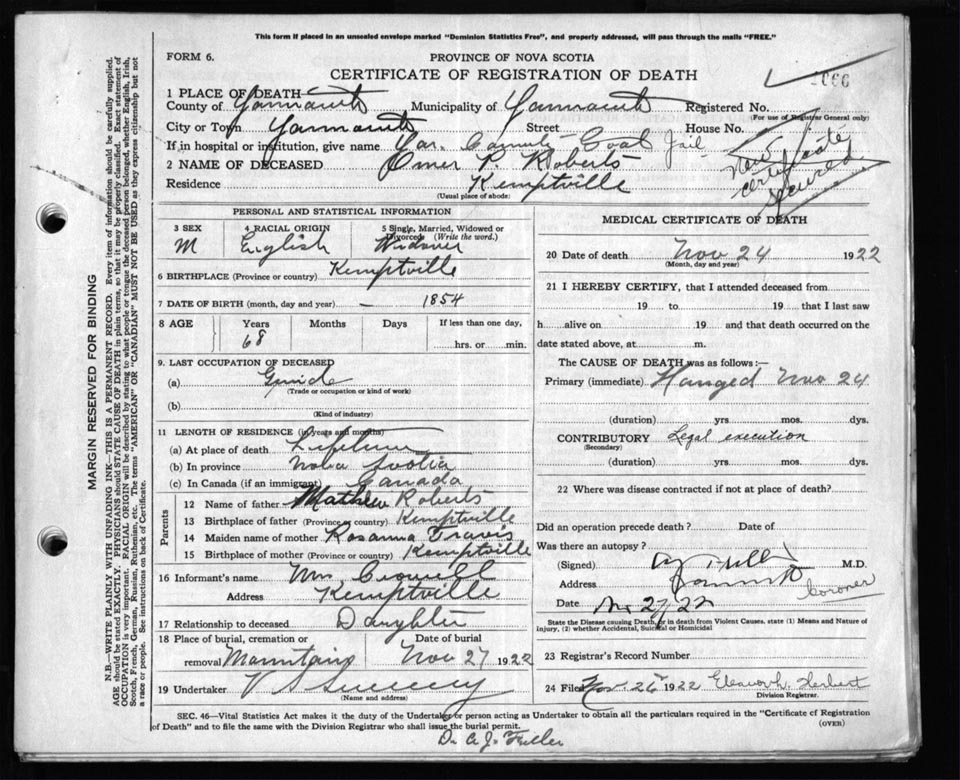 This form if placed in an unsealed envelope marked "Dominion Statistics Free", and properly addressed, will pass through the mails "FREE."
FORM 6.
PROVINCE OF NOVA SCOTIA
CERTIFICATE OF REGISTRATION OF DEATH
1 PLACE OF DEATH
County of Yarmouth Municipality of Yarmouth Registered No.
(For use of Registrar General only)
City or Town Yarmouth Street House No.
If in hospital or institution, give name Yar. County Goal Jail
New certificate secured
2 NAME OF DECEASED Omer P. Roberts
Residence Kemptville
(Usual place of abode)
PERSONAL AND STATISTICAL INFORMATION
3 SEX M
4 RACIAL ORIGIN English
5 Single, Married, Widowed or Divorced (Write the word.) Widower
6 BIRTHPLACE (Province or country) Kemptville
7 DATE OF BIRTH (month, day and year) — 1854
8 AGE Years Months Days If less than one day,
68 hrs. or min.
9. LAST OCCUPATION OF DECEASED
(a) Guide
(Trade or occupation or kind of work)
(b)
(Kind of industry)
11 LENGTH OF RESIDENCE (in years and months)
(a) At place of death Lifetime
(b) In province Nova Scotia
(c) In Canada (if an immigrant) Canada
Parents
12 Name of father Mathew Roberts
13 Birthplace of father (Province or country) Kemptville
14 Maiden name of mother Rosanna Travis
15 Birthplace of mother (Province or country) Kemptville
16 Informant's name Mrs.
Address Kemptville
17 Relationship to deceased Daughter
18 Place of burial, cremation or Date of burial
removal Mountains Nov 27 1922
19 Undertaker V S Sweeny
(Name and address)
MEDICAL CERTIFICATE OF DEATH
20 Date of death Nov 24 1922
(Month, day and year)
21 I HEREBY CERTIFY, that I attended deceased from
19 to 19 that I last saw
h alive on 19 and that death occurred on the
date stated above, at m.
The CAUSE OF DEATH was as follows:—
Primary (immediate) Hanged Nov 24
(duration) yrs mos. dys.
CONTRIBUTORY Legal execution
(Secondary)
(duration) yrs. mos. dys.
22 Where was disease contracted if not at place of death?
Did an operation precede death? Date of
Was there an autopsy?
(Signed) M.D.
Address Yarmouth Coroner
Date Nov 27/22
State the Disease causing Death, or in death from Violent Causes, state (1) Means and Nature of Injury, (2) whether Accidental, Suicidal or Homicidal
23 Registrar's Record Number
24 Filed Nov. 26 1922 Eleanor L. Herbert
Division Registrar.
SEC. 46—Vital Statistics Act makes it the duty of the Undertaker or person acting as Undertaker to obtain all the particulars required in the "Certificate of Registration
of Death" and to file the same with the Division Registrar who shall issue the burial permit. (OVER)
Dr A. J. Fuller
MARGIN RESERVED FOR BINDING
N.B.—WRITE PLAINLY WITH UNFADING INK—THIS IS A PERMANENT RECORD. Every item of information should be carefully supplied.
AGE should be stated EXACTLY. PHYSICIANS should STATE CAUSE OF DEATH in plain terms, so that it may be properly classified. Exact statement of
OCCUPATION is very important. RACIAL ORIGIN will be described by stating to what people or tongue the deceased person belonged, whether English, Irish,
Scotch, French, German, Russian, Ruthenian, etc. The terms "AMERICAN" or "CANADIAN" MUST NOT BE USED as they express citizenship but not
a race or people. See instructions on back of Certificate.